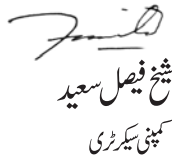 شیخ فیصل سعید
کمپنی سیکرٹری